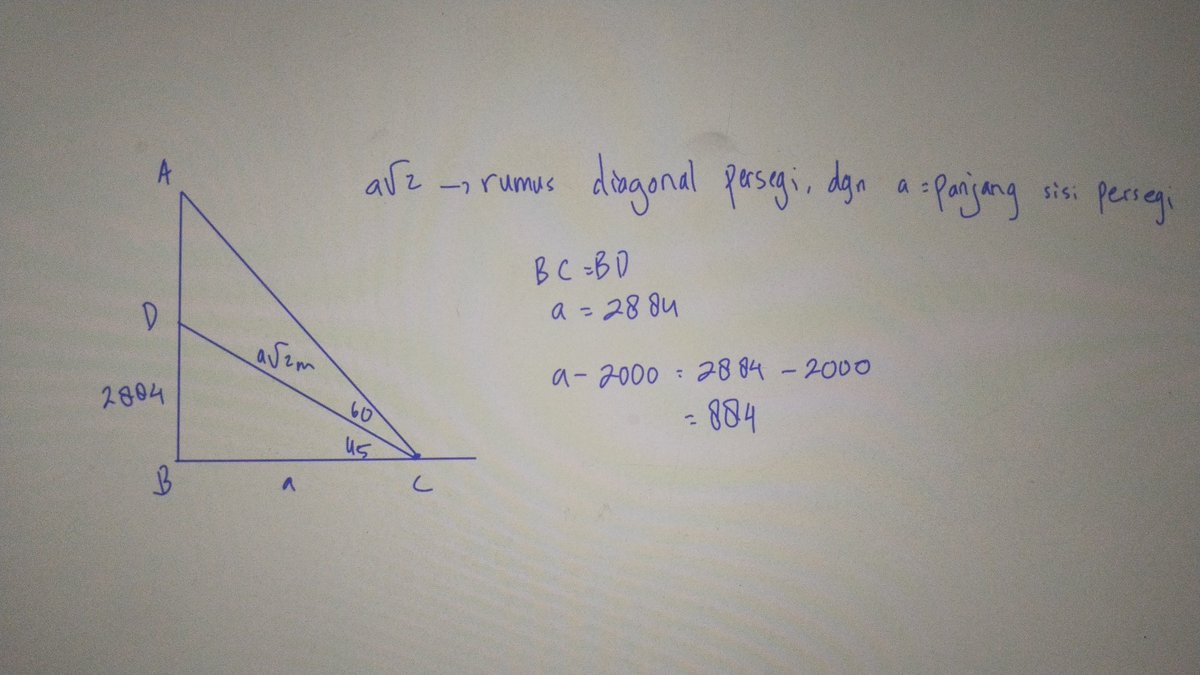 A
a√2 → rumus diagonal persegi, dgn a = panjang sisi persegi
BC = BD
a = 2884
D
a√2 m
a - 2000 = 2884 - 2000
2884
60
= 884
45
B
a
C